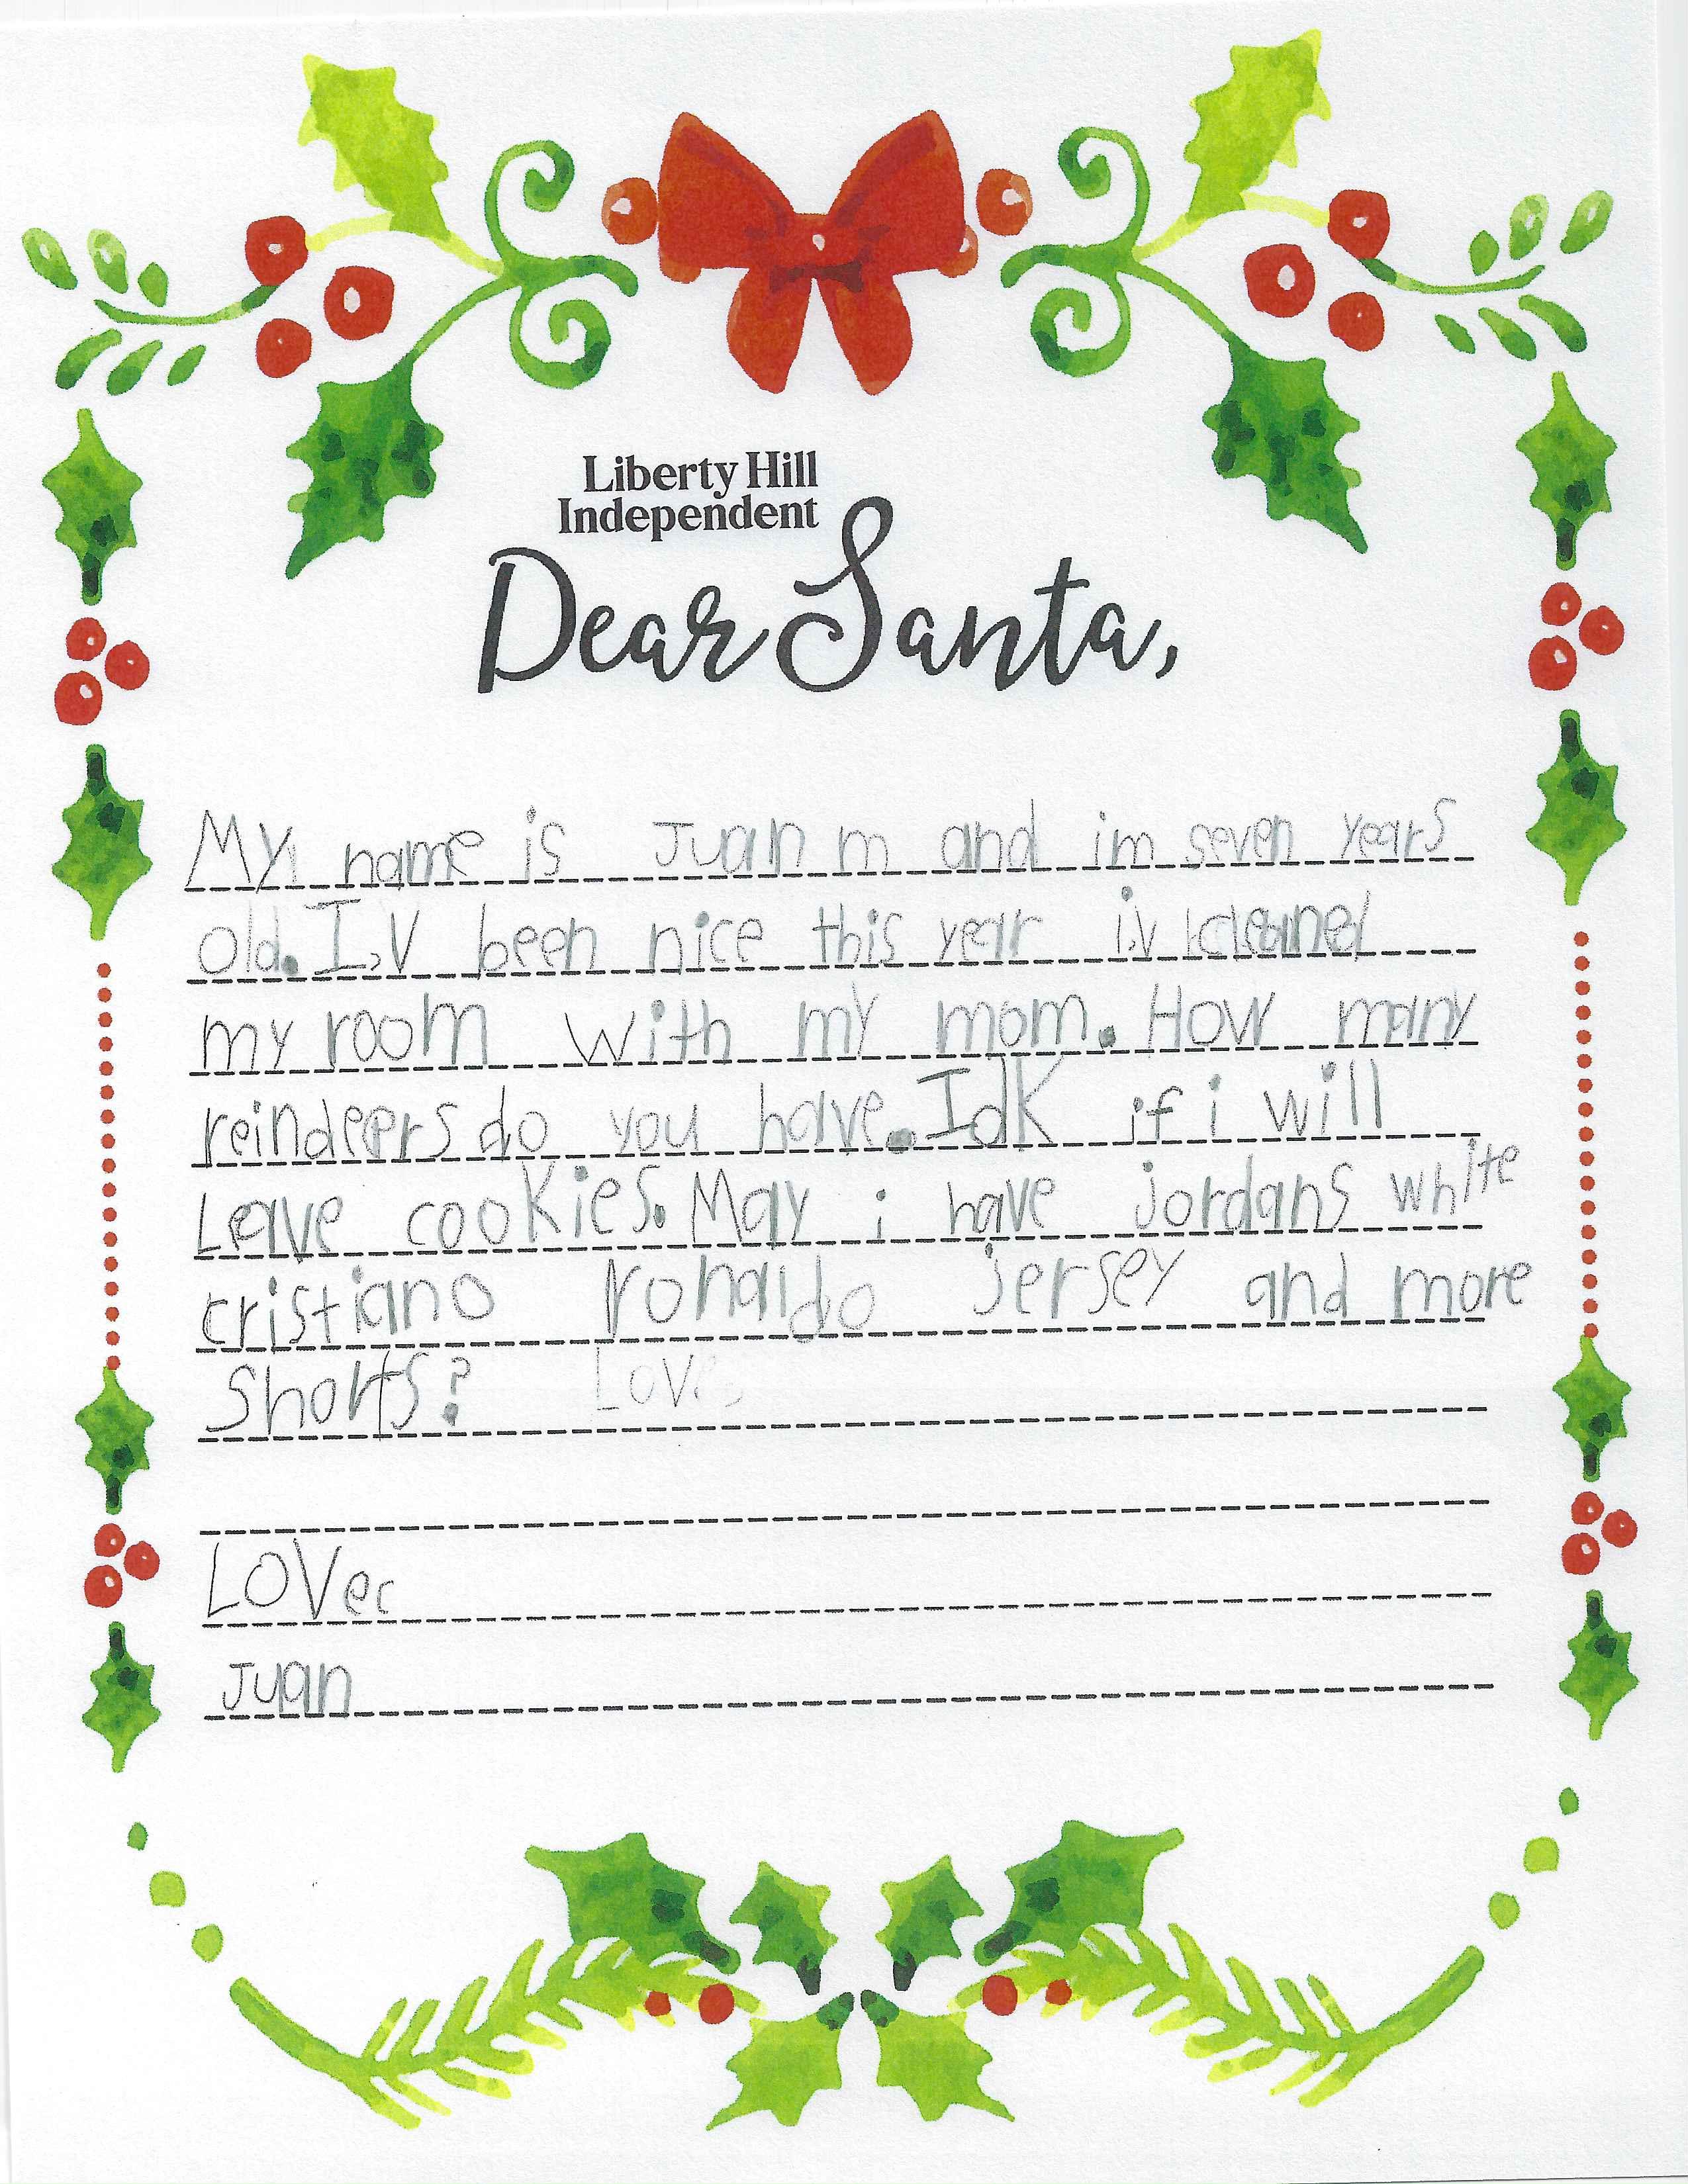 Liberty Hill
Independent
Dear Santa,
My name is Juan m and im seven years
old. I,v been nice this year i,v cleaned
my room with my mom. How many
reindeers do you have. Idk if i will
Leave cookies. May i have jordans white
cristiano ronaldo jersey and more
Shorts? Love,
LOVe,
Juan